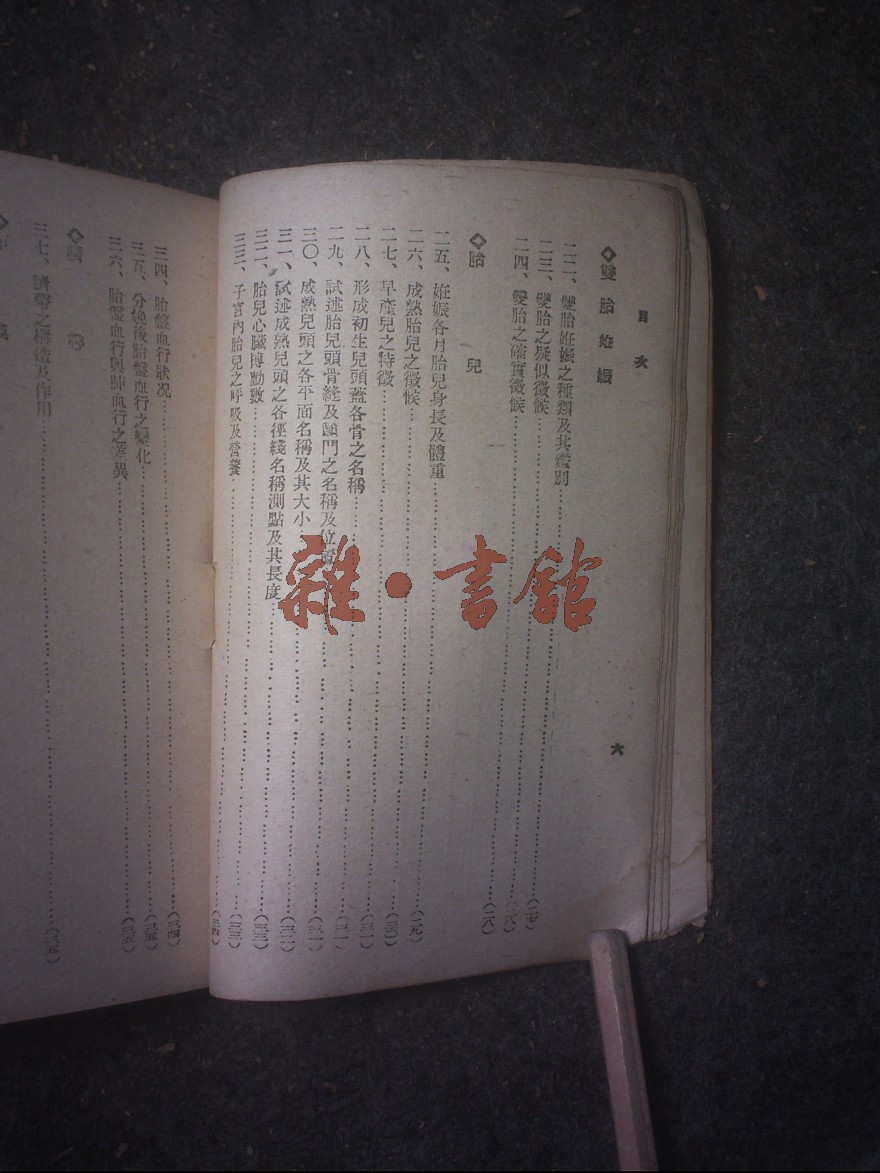 目次
六
◇雙胎姙娠
二二、雙胎姙娠之種類及其鑑別……(二七)
二三、雙胎之疑似徵候……(二八)
二四、雙胎之確實徵候……(二八)
◇胎兒
二五、姙娠各月胎兒身長及體重……(二九)
二六、成熟胎兒之徵候
二七、早產兒之特徵
二八、形成初生兒頭蓋各骨之名稱……(三一)
二九、試述胎兒頭骨縫及顖門之名稱及位置……(三一)
三〇、成熟兒頭之各平面名稱及其大小
三一、試述成熟兒頭之各徑綫名稱測點及其長度
三二、胎兒心臟搏動數……(三三)
三三、子宮內胎兒之呼吸及營養
三四、胎盤血行狀況……(三四)
三五、分娩後胎盤血行之變化
三六、胎盤血行與肺血行之差異……(三五)
三七、臍帶之構造及作用……(三五)
雜·書館